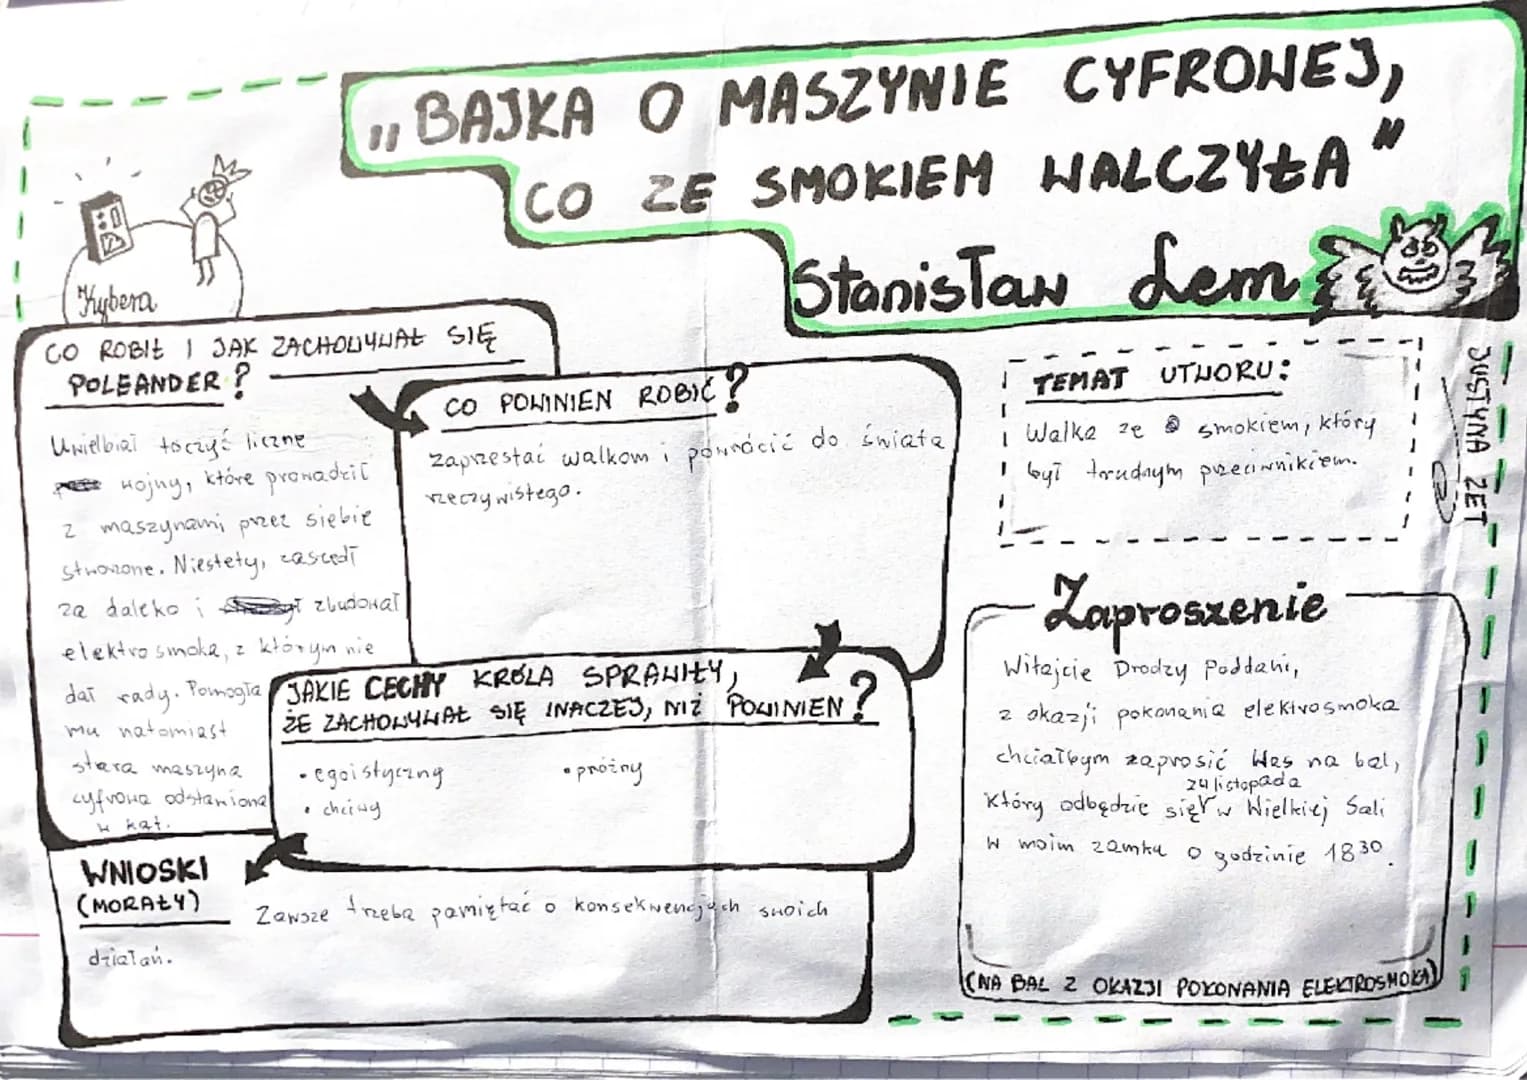 „BAJKA O MASZYNIE CYFROWEJ,
CO ZE SMOKIEM WALCZYŁA"
Stanisław Lem
Kybera
CO ROBIŁ I JAK ZACHOWYWAŁ SIĘ
POLEANDER?
Uwielbiał toczyć liczne
wojny, które prowadził
z maszynami przez siebie
stworzone. Niestety, zaszedł
za daleko i zbudował
elektrosmoka, z którym nie
dał rady. Pomogła
mu natomiast
stara maszyna
cyfrowa odstawiona
w kąt.
CO POWINIEN ROBIĆ?
zaprzestać walkom i powrócić do świata
rzeczywistego.
JAKIE CECHY KRÓLA SPRAWIŁY,
ŻE ZACHOWYWAŁ SIĘ INACZEJ, NIŻ POWINIEN?
• egoistyczny
• próżny
• chciwy
WNIOSKI
(MORAŁY)
Zawsze trzeba pamiętać o konsekwencjach swoich
działań.
TEMAT UTWORU:
Walka ze smokiem, który
był trudnym przeciwnikiem.
JUSTYNA ZET
Zaproszenie
Witajcie Drodzy Poddani,
z okazji pokonania elektrosmoka
chciałbym zaprosić Was na bal,
24 listopada
który odbędzie się w Wielkiej Sali
w moim zamku o godzinie 18 30.
(NA BAL Z OKAZJI POKONANIA ELEKTROSMOKA)